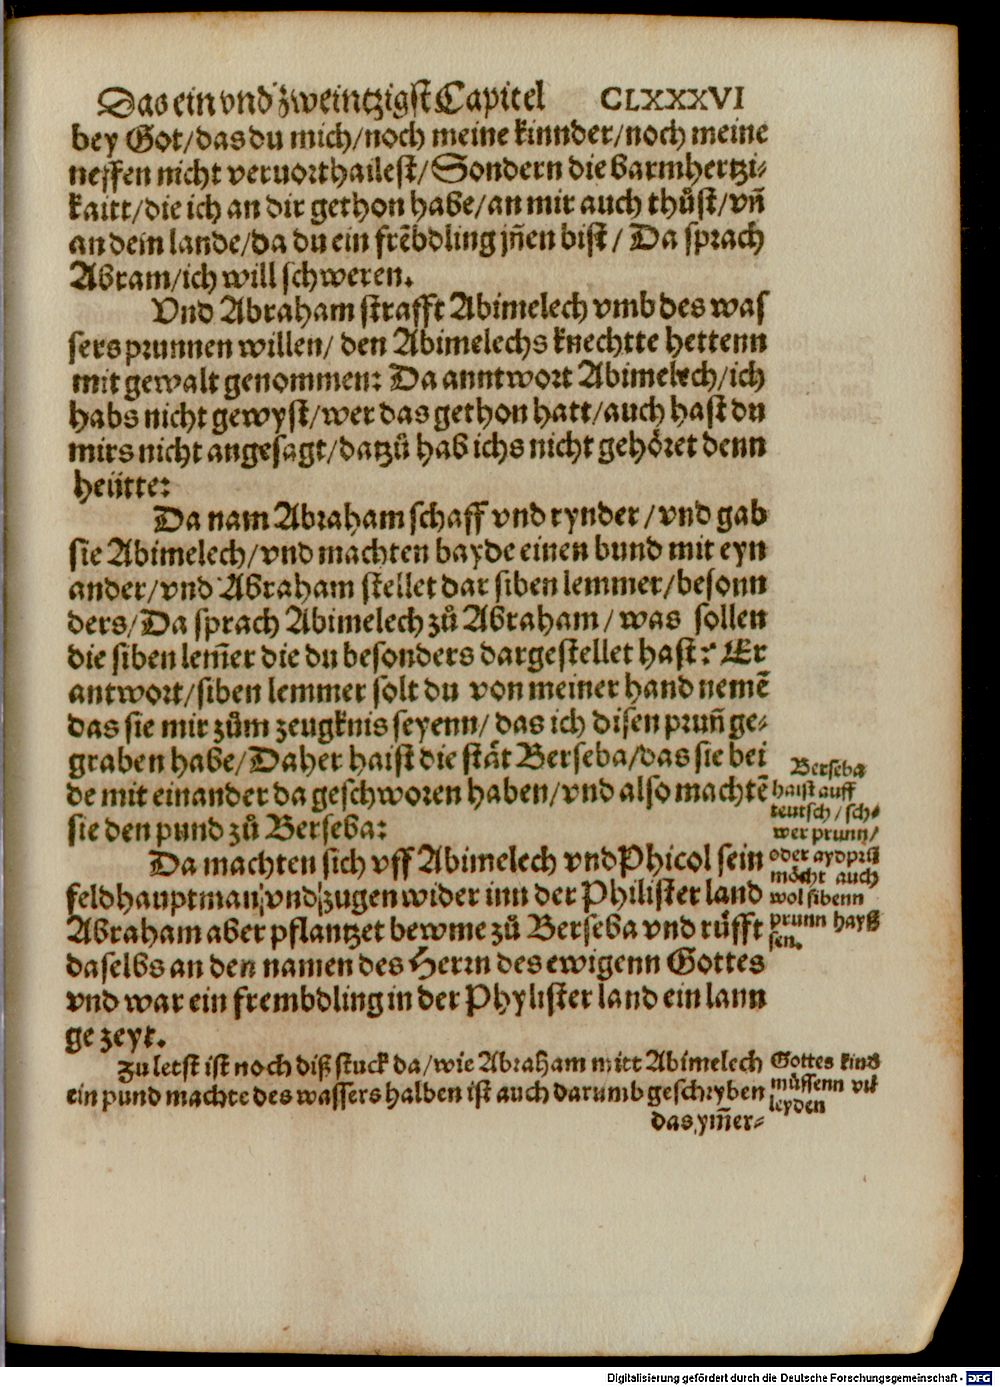 Das ein vnd zweintzigst Capitel CLXXXVI
bey Got/das du mich/noch meine kinnder/noch meine
neffen nicht veruorthailest/Sondern die barmhertzi-
kaitt/die ich an dir gethon habe/an mir auch thůst/vñ
an dein lande/da du ein frẽbdling jñen bist/ Da sprach
Abram/ich will schweren.
Vnd Abraham strafft Abimelech vmb des was
sers prunnen willen/ den Abimelechs knechtte hettenn
mit gewalt genommen: Da anntwort Abimelech/ich
habs nicht gewyst/wer das gethon hatt/auch hast du
mirs nicht angesagt/datzů hab ichs nicht gehöret denn
heütte:
Da nam Abraham schaff vnd rynder/vnd gab
sie Abimelech/vnd machten bayde einen bund mit eyn
ander/vnd Abraham stellet dar siben lemmer/besonn
ders/Da sprach Abimelech zů Abraham/ was sollen
die siben lem̃er die du besonders dargestellet hast? Er
antwort/siben lemmer solt du von meiner hand nemẽ
das sie mir zům zeugknis seyenn/ das ich disen pruñ ge-
graben habe/Daher haist die stát Berseba/das sie bei
de mit einander da geschworen haben/vnd also machtẽ
sie den pund zů Berseba:
Da machten sich vff Abimelech vnd Phicol sein
feldhauptman/vnd zugen wider inn der Philister land
Abraham aber pflantzet bewme zů Berseba vnd růfft
daselbs an den namen des Herrn des ewigenn Gottes
vnd war ein frembdling in der Phylister land ein lann
ge zeyt.
Zu letst ist noch diß stuck da/wie Abraham mitt Abimelech
ein pund machte des wassers halben ist auch darumb geschryben
das ym̃er-
Berseba
haist auff
teutsch/sch-
wer prunn/
oder aydprũ
möcht auch
wol sibenn
prunn hayß
sen.
Gottes kind
müssenn vil
leyden
Digitalisierung gefördert durch die Deutsche Forschungsgemeinschaft - DFG